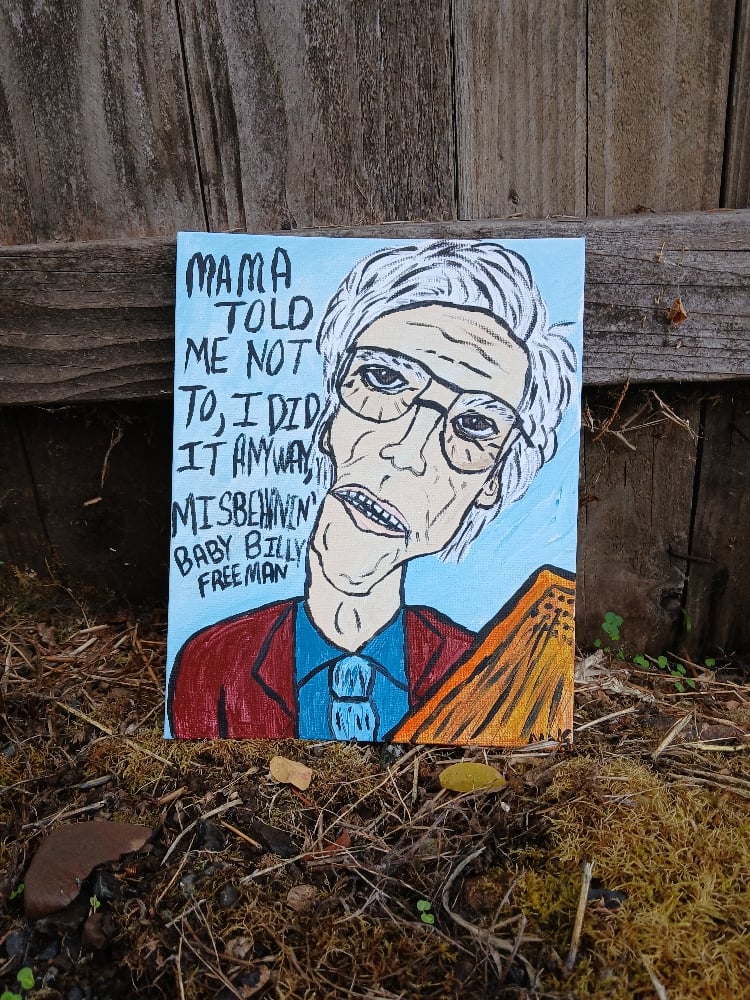 MAMA
TOLD
ME NOT
TO, I DID
IT ANYWAY,
MISBEHAVIN'
BABY BILLY
FREEMAN